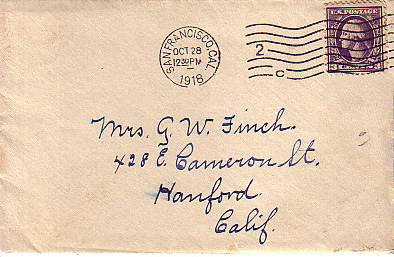 SAN FRANCISCO, CAL.
OCT 28
12 30 PM
1918
2
C
U.S. POSTAGE
3
Mrs. G. W. Finch.
428 E. Cameron St.
Hanford.
Calif.